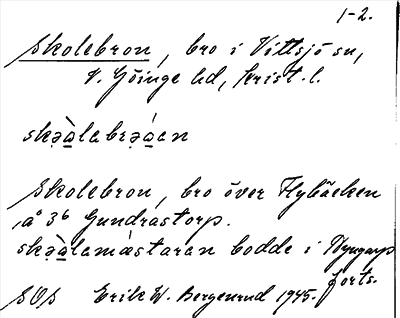 1-2.
Skolebron, bro i Vittsjö sn,
V. Göinge hd, Krist. l.
skǝa̤labrǝá̤an
Skolebron, bro över Flybäcken
å 3⁶ Gundrastorp.
skǝa̤lamástaran bodde i Nygarp
forts.
SOS Erik W. Bergenrud 1945.